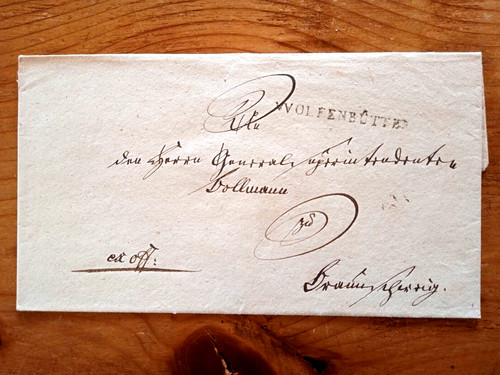 An
WOLFENBÜTTEL
den Herrn General Superintendenten
Bollmann
zu
ex off:
Braunschweig.